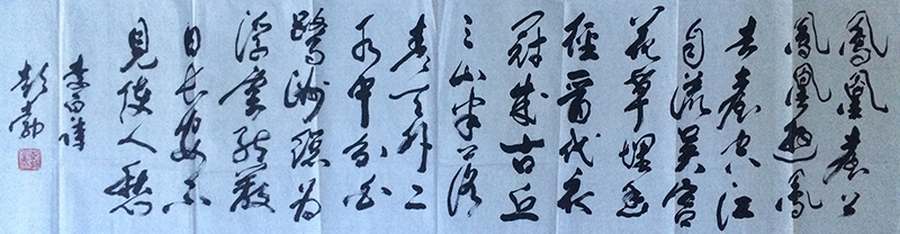 鳳凰臺上
鳳凰遊鳳
去臺空江
自流吳宮
花草埋幽
徑晉代衣
冠成古丘
三山半落
青天外二
水中分白
鷺洲總為
浮雲能蔽
日長安不
見使人愁
李白詩
彭勃